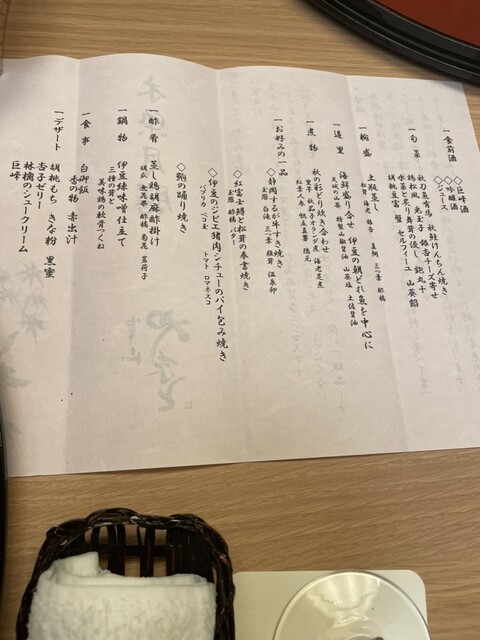 一 食前酒
◇巨峰酒
◇吟醸酒
◇ジュース
一 旬 菜
秋刀魚有馬 秋鮭けんちん焼き
鶏松風 丸玉子 銀杏チーズ寄せ
水菜と炙り舞茸の浸し 鮑丸十
胡桃豆富 蟹 セルフィーユ 山葵餡
一 椀 盛
土瓶蒸し
松茸 海老 銀杏 真鯛 三つ葉 酢橘
一 造 里
海鮮盛り合せ 伊豆の朝どれ魚を中心に
天城の山葵 特製山椒醤油 山葵塩 土佐醤油
一 煮 物
秋の彩どり炊き合わせ
里芋 秋茄子オランダ煮 海老芝煮
紅葉人参 帆立真薯 隠元
一 お好みの一品
◇静岡するが牛すき焼き
玉葱 白滝 三つ葉 椎茸 温泉卵
◇紅富士鱒と松茸の奉書焼き
玉葱 酢橘 バター
◇伊豆のジビエ猪肉シチューのパイ包み焼き
パプリカ ペコ玉 トマト ロマネスコ
◇鮑の踊り焼き
一 酢 肴
蒸し鶏胡麻酢掛け
胡瓜 酢橘 菊花 茗荷子
一 鍋 物
伊豆緑味噌仕立て
三種の茸など
美味鶏の軟骨つくね
一 食 事
白御飯
香の物 赤出汁
一 デザート
胡桃もち きな粉 黒蜜
杏子ゼリー
林檎のシュークリーム
巨峰